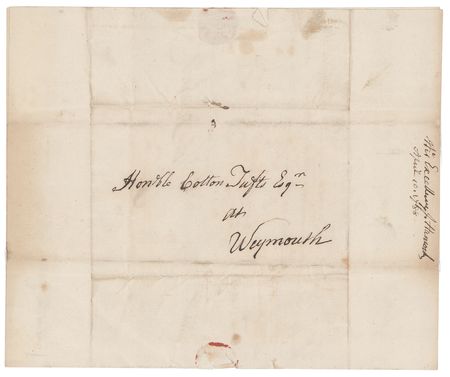 Honble Cotton Tufts Esqr
at
Weymouth
His Excellency J Hancock
April 10. 1788